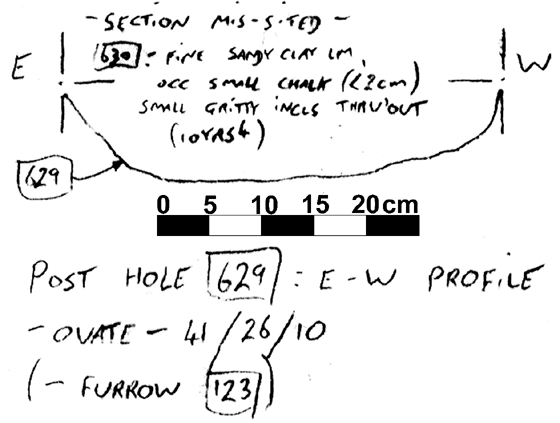 - SECTION MIS-SITED -
630 : FINE SANDY CLAY LM,
E OCC SMALL CHALK (<2cm) W
SMALL GRITTY INCLS THRU'OUT
(10YR54)
629
0 5 10 15 20cm
POST HOLE 629 : E-W PROFILE
- OVATE - 41/26/10
(- FURROW 123)